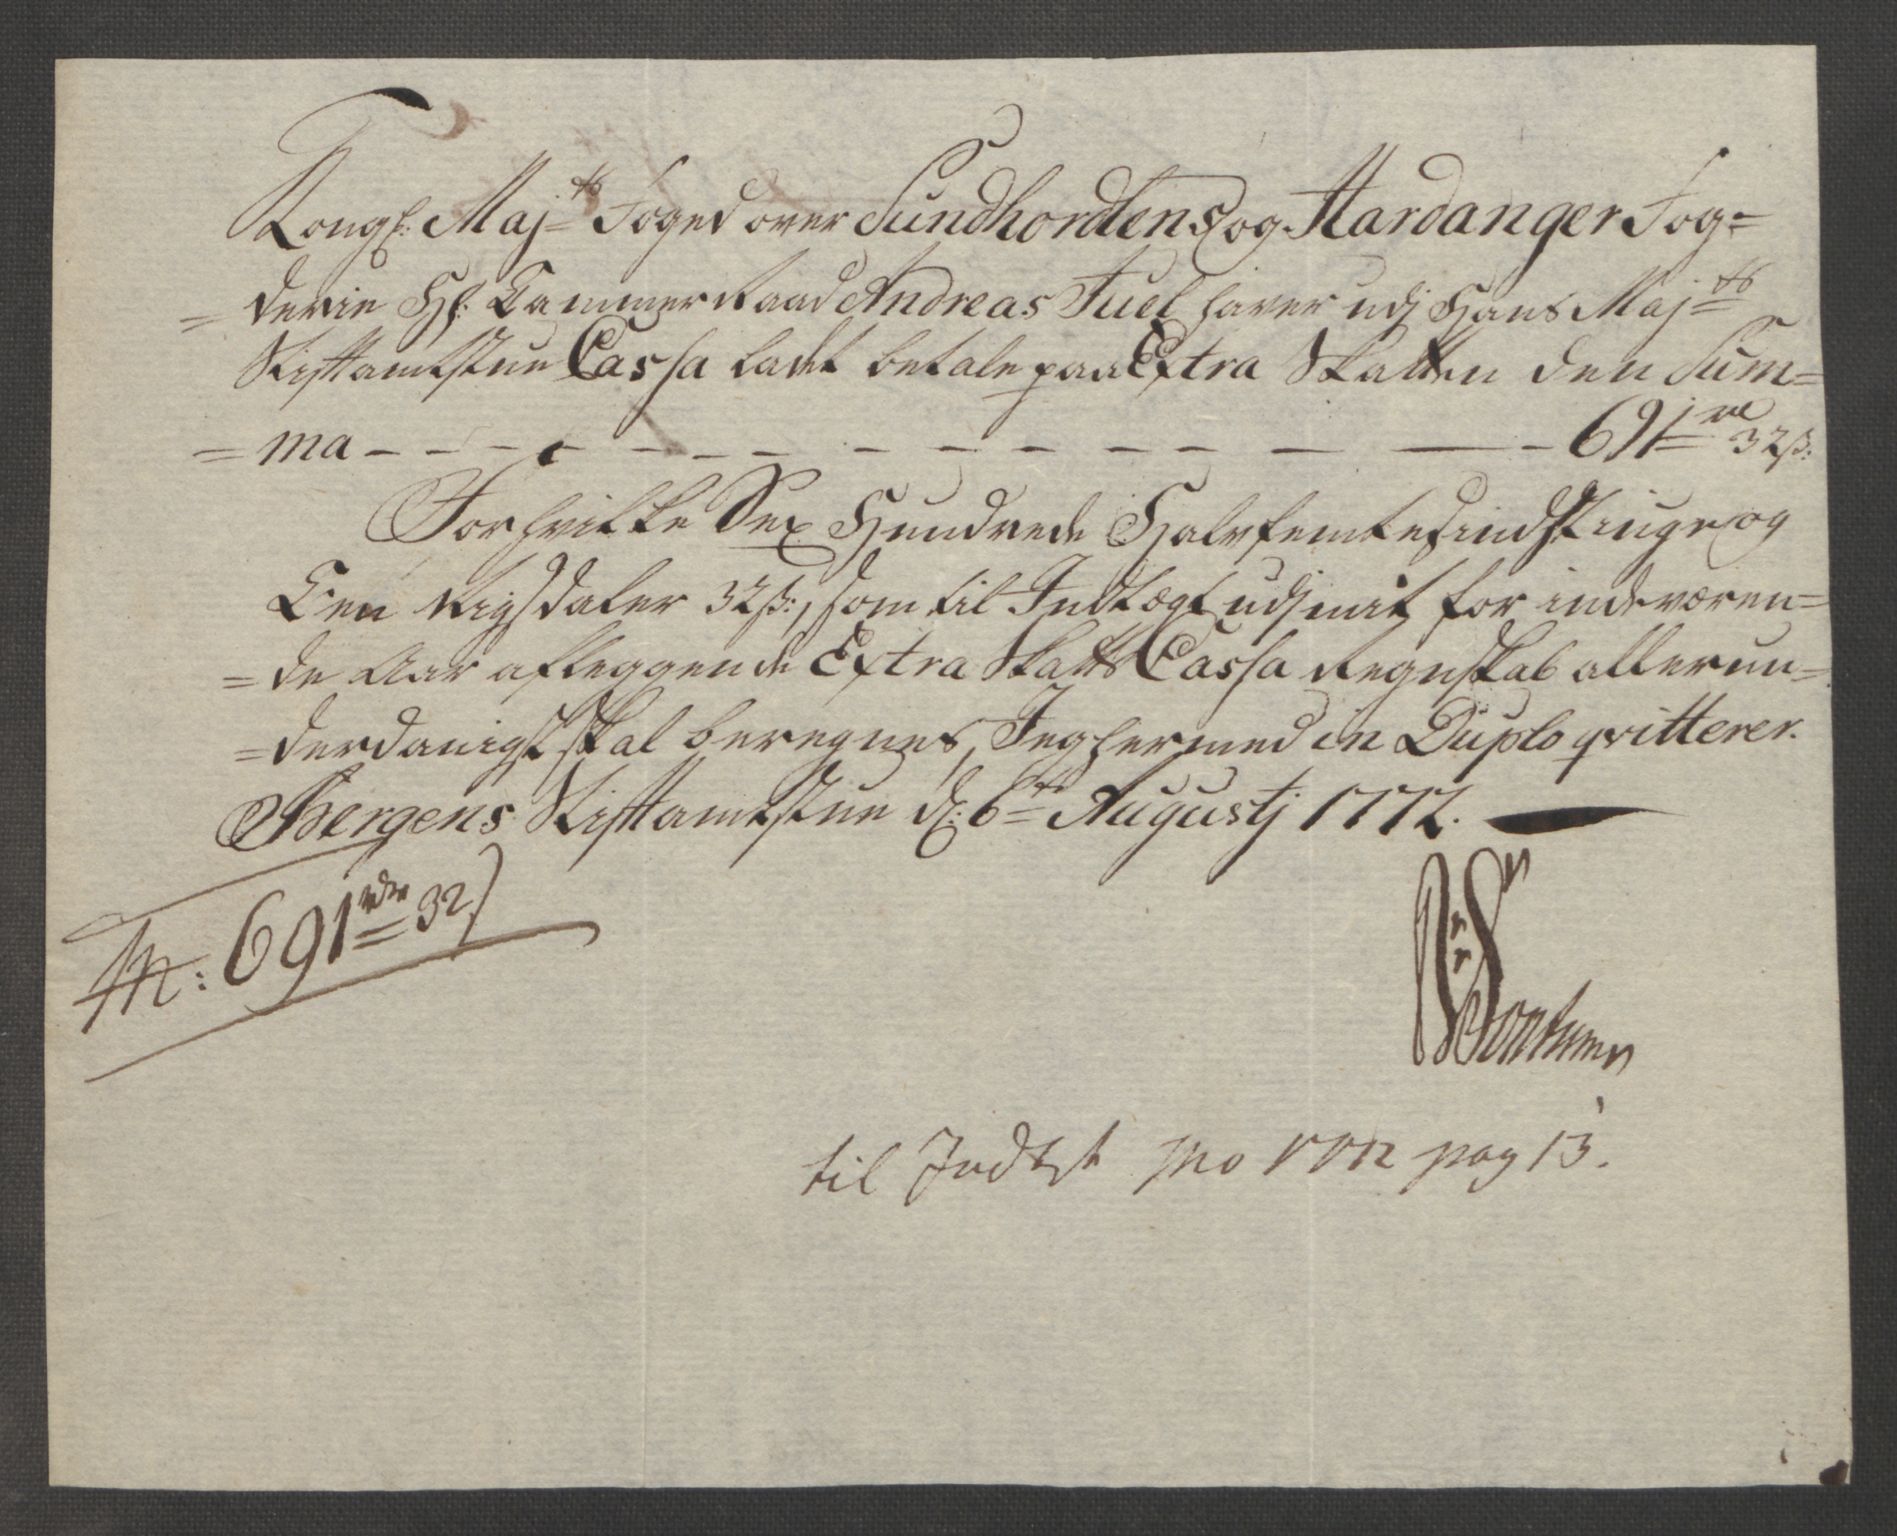 Kongl: Maj<sup>ts</sup> Foged over Sundhordlens og Hardanger Fog=
=derie Hr: Cammer Raad Andreas Juel haver udj Hans Maj<sup>ts</sup>
Stiftamtstue Cassa ladet betale paa Extra Skatten den Sum=
=ma - - - - - - - - - - - - 691 rd 32 ß:
Forhvilke Sex Hundrede Halvfemtesindstiuge og
Een Rigsdaler 32 ß:, som til Indtægt udj mit for indeværen=
=de Aar aflæggende Extra Skatts Cassa Regnskab allerun=
=derdanigst skal beregnes, Jeg hermed in Duplo qvitterer.
Bergens Stiftamtstue d: 6<sup>te</sup> Augustj 1772.
691 rdr 32
til Indtgt pro 1772 pag 13.